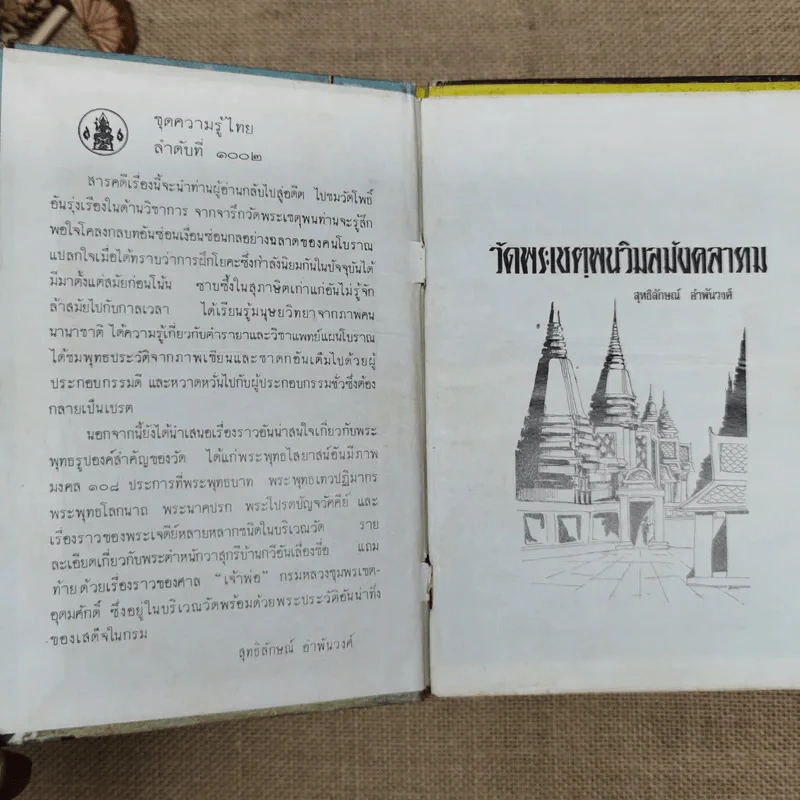 ชุดความรู้ไทย
ลำดับที่ ๑๐๐๒
สารคดีเรื่องนี้จะนำท่านผู้อ่านกลับไปสู่อดีต ไปชมวัดโพธิ์
อันรุ่งเรืองในด้านวิชาการ จากจารึกวัดพระเชตุพนท่านจะรู้สึก
พอใจโคลงกลบทอันซ่อนเงื่อนซ่อนกลอย่างฉลาดของคนโบราณ
แปลกใจเมื่อได้ทราบว่าการฝึกโยคะซึ่งกำลังนิยมกันในปัจจุบันได้
มีมาตั้งแต่สมัยก่อนโน้น ซาบซึ้งในสุภาษิตเก่าแก่อันไม่รู้จัก
ล้าสมัยไปกับกาลเวลา ได้เรียนรู้มนุษยวิทยาจากภาพคน
นานาชาติ ได้ความรู้เกี่ยวกับตำรายาและวิชาแพทย์แผนโบราณ
ได้ชมพุทธประวัติจากภาพเขียนและชาดกอันเต็มไปด้วยผู้
ประกอบกรรมดี และหวาดหวั่นไปกับผู้ประกอบกรรมชั่วซึ่งต้อง
กลายเป็นเปรต
นอกจากนี้ยังได้นำเสนอเรื่องราวอันน่าสนใจเกี่ยวกับพระ
พุทธรูปองค์สำคัญของวัด ได้แก่พระพุทธไสยาสน์อันมีภาพ
มงคล ๑๐๘ ประการที่พระพุทธบาท พระพุทธเทวปฏิมากร
พระพุทธโลกนาถ พระนาคปรก พระโปรดปัญจวัคคีย์ และ
เรื่องราวของพระเจดีย์หลายหลากชนิดในบริเวณวัด ราย
ละเอียดเกี่ยวกับพระตำหนักวาสุกรีบ้านกวีอันเลื่องชื่อ แถม
ท้ายด้วยเรื่องราวของศาล "เจ้าพ่อ" กรมหลวงชุมพรเขต-
อุดมศักดิ์ ซึ่งอยู่ในบริเวณวัดพร้อมด้วยพระประวัติอันน่าทึ่ง
ของเสด็จในกรม
สุทธิลักษณ์ อำพันวงศ์
วัดพระเชตุพนวิมลมังคลาราม
สุทธิลักษณ์ อำพันวงศ์